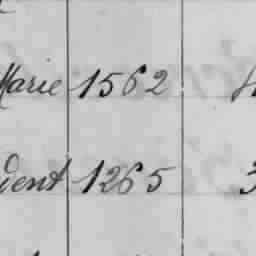 Marie 1562
dent 1265 3